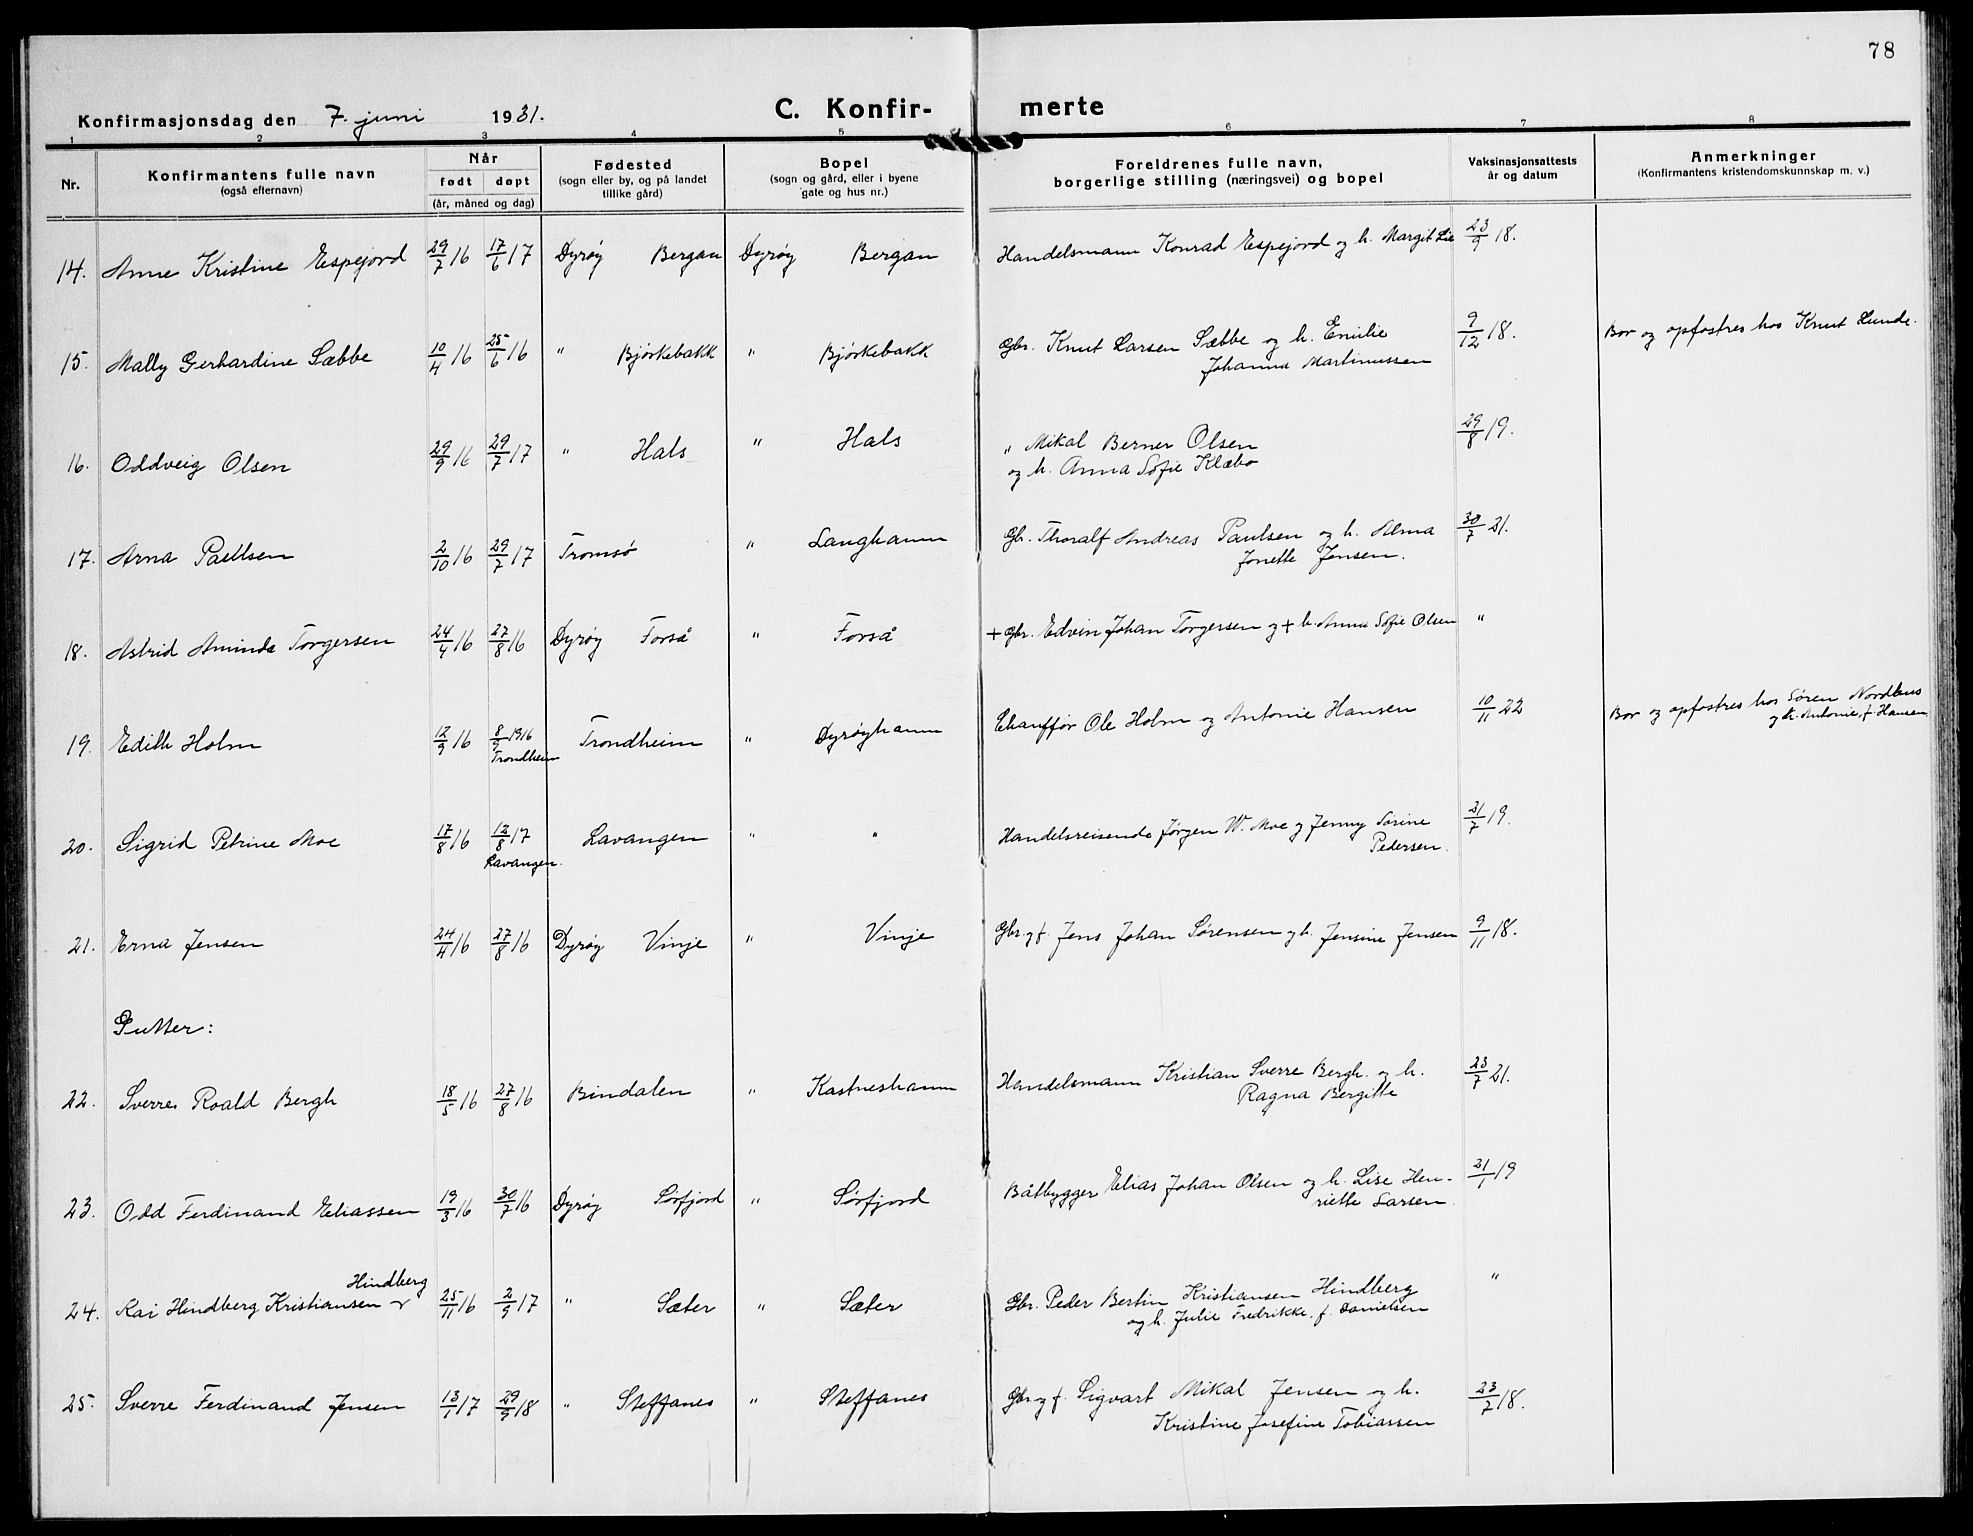 78
Konfirmasjonsdag den 7. juni 1931. C. Konfir- merte
1 2 3 4 5 6 7 8
Nr. Konfirmantens fulle navn (også efternavn) Når født døpt (år, måned og dag) Fødested (sogn eller by, og på landet tillike gård) Bopel (sogn og gård, eller i byene gate og hus nr.) Foreldrenes fulle navn, borgerlige stilling (næringsvei) og bopel Vaksinasjonsattests år og datum Anmerkninger (Konfirmantens kristendomskunnskap m. v.)
14. Anne Kristine Espejord 29/7 16 17/6 17 Dyrøy Bergan Dyrøy Bergan Handelsmann Konrad Espejord og h. Margit Lie 23/9 18.
15. Mally Gerhardine Sæbbe 10/4 16 25/6 16 " Bjørkebakk " Bjørkebakk Gbr. Knut Larsen Sæbbe og h. Emilie 9/12 18. Bor og opfostres hos Knut Lunde.
Johanna Martinussen
16. Oddveig Olsen 29/9 16 29/7 17 " Hals " Hals " Mikal Berner Olsen 29/8 19.
og h. Anna Sofie Klæbo
17. Arna Paulsen 2/10 16 29/7 17 Tromsø " Langhamn Gbr. Thoralf Andreas Paulsen og h. Alma 30/7 21.
Jonette Jensen.
18. Astrid Aminda Torgersen 24/4 16 27/8 16 Dyrøy Forså " Forså + Gbr. Edvin Johan Torgersen og + h. Anna Sofie Olsen "
19. Edith Holm 12/9 16 8/9 1916 Trondheim Trondheim " Dyrøyhamn Chauffør Ole Holm og Antonie Hansen 10/11 22 Bor og opfostres hos Søren Nordhus
og h. Antonie, f. Hansen
20. Sigrid Petrine Moe 17/8 16 12/8 17 Lavangen. Lavangen " " Handelsreisende Jørgen W. Moe og Jenny Sorine 31/7 19.
Pedersen.
21. Erna Jensen 24/4 16 27/8 16 Dyrøy Vinje " Vinje Gbr. og f. Jens Johan Sørensen og h. Jensine Jensen 9/11 18.
Gutter:
22. Sverre Roald Bergh 18/5 16 27/8 16 Bindalen " Kastneshamn Handelsmann Kristian Sverre Bergh og h. 23/7 21.
Ragna Bergitte
23. Odd Ferdinand Eliassen 19/3 16 30/7 16 Dyrøy Sørfjord " Sørfjord Båtbygger Elias Johan Olsen og h. Lise Hen- 21/1 19
riette Larsen.
Hindberg
24. Kai Hindberg Kristiansen 25/11 16 2/9 17 " Sæter " Sæter Gbr. Peder Bertin Kristiansen Hindberg "
og h. Julie Fredrikke, f. Danielsen
25. Sverre Ferdinand Jensen 13/1 17 29/9 18 " Steffanes " Steffanes Gbr. og f. Sigvart Mikal Jensen og h. 23/7 18.
Kristine Josefine Tobiassen